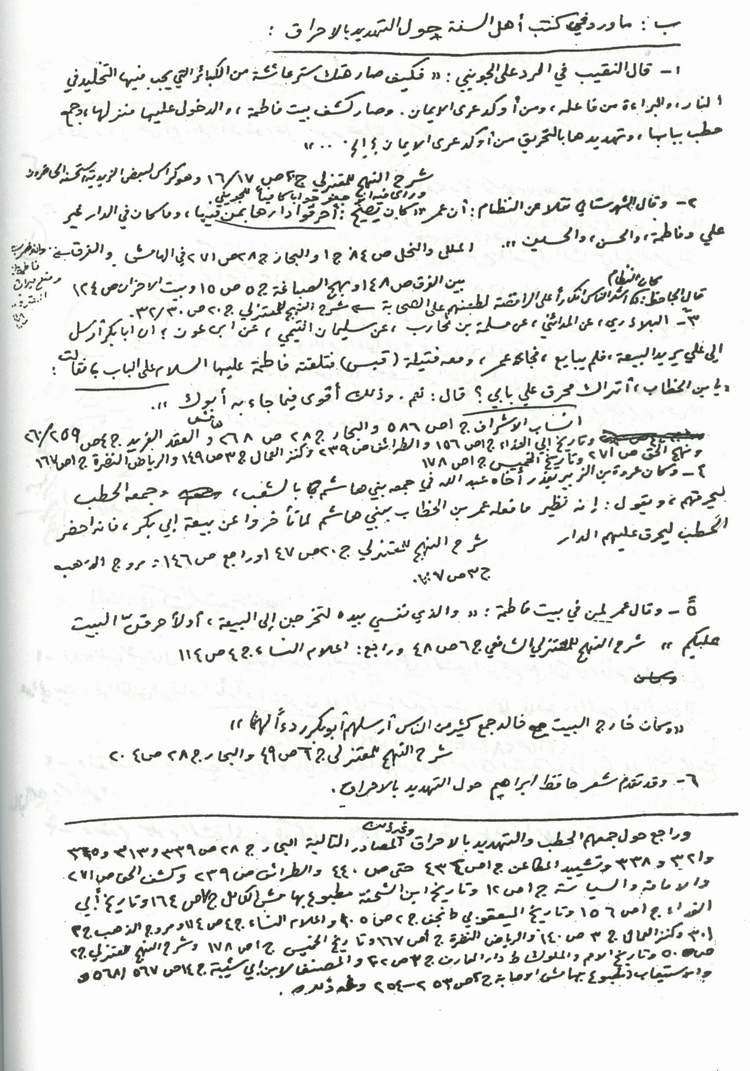 ب : ما ورد في كتب أهل السنة حول التهديد بالاحراق :
١- قال النقيب في الرد على الجويني : « فكيف صار هتك ستر عائشة من الكبائر التي يجب منها التخليد في
النار، والبراءة من فاعله، ومن أوكد عرى الايمان. وصار كشف بيت فاطمة، والدخول عليها منزلها، وجمع
حطب ببابها، وتهديدها بالتحريق من أوكد عرى الايمان ؟ إلخ ... »
شرح النهج للمعتزلي ج ٢٠ ص ١٦/١٧ وهو كراس لبعض الزيدية استحسنه الحاضرون
٢- وقال الشهرستاني نقلا عن النظام : أن عمر « كان يصيح : أحرقوا دارها بمن فيها، وما كان في الدار غير
علي وفاطمة، والحسن، والحسين ». الملل والنحل ص ٨٤ ج ١ والبحار ج ٢٨ ص ٢٧١ في الهامش والفرق
بين الفرق ص ١٤٨ وبهج الصباغة ج ٥ ص ١٥ وبيت الاحزان ص ١٢٤
قال الجاحظ : كان النظام أشد الناس انكارا على الرافضة لطعنهم على الصحابة شرح النهج للمعتزلي ج ٢٠ ص ٣٢/٣٠.
٣- البلاذري، عن المدائني، عن مسلمة بن محارب، عن سليمان التيمي، عن ابن عون : ان ابا بكر أرسل
إلى علي يريد البيعة، فلم يبايع، فجاء عمر، ومعه فتيلة (قبس) فتلقته فاطمة عليها السلام على الباب فقالت :
« يا بن الخطاب، أتراك محرق علي بابي ؟ قال : نعم. وذلك أقوى فيما جاء به أبوك ».
انساب الأشراف ج ١ ص ٥٨٦ والبحار ج ٢٨ ص ٢٦٨ والعقد الفريد ج ٤ ص ٢٥٩/٢٦٠
وتاريخ أبي الفداء ج ١ ص ١٥٦ والطرائف ص ٢٣٩ وكنز العمال ج ٣ ص ١٤٩ والرياض النضرة ج ١ ص ١٦٧
ونهج الحق ص ٢٧١ وتاريخ الخميس ج ١ ص ١٧٨
٤- وكان عروة بن الزبير يعذر أخاه عبد الله في جمعه بني هاشم بالشعب، وجمعه الحطب
ليحرقهم، ويقول : إنه نظير ما فعله عمر بن الخطاب ببني هاشم لما تأخروا عن بيعة أبي بكر، فانه احضر
الحطب ليحرق عليهم الدار شرح النهج للمعتزلي ج ٢٠ ص ١٤٧ وراجع ص ١٤٦ مروج الذهب
ج ٣ ص ٧٧.
٥- وقال عمر لمن في بيت فاطمة : « والذي نفسي بيده لتخرجن إلى البيعة، أو لأحرقنّ البيت
عليكم » شرح النهج للمعتزلي الشافعي ج ٦ ص ٤٨ وراجع : اعلام النساء ج ٤ ص ١١٤
« وكان خارج البيت مع خالد جمع كثير من الناس أرسلهم أبو بكر ردءاً لهما »
شرح النهج للمعتزلي ج ٦ ص ٤٩ والبحار ج ٢٨ ص ٢٠٤
٦- وقد تقدم شعر حافظ ابراهيم حول التهديد بالاحراق.
وراجع حول جمعهم الحطب والتهديد بالاحراق المصادر التالية البحار ج ٢٨ ص ٣٣٩ و ٣١٣
و ٣٢١ و ٣٣٨ وتشييد المطاعن ج ١ ص ٤٣٤ حتى ص ٤٤٠ والطرائف ص ٢٣٩ وكشف الحق ص ٢٧١
والامامة والسياسة ج ١ ص ١٢ وتاريخ ابن الشحنة مطبوع بهامش الكامل ج ٧ ص ١٦٤ وتاريخ أبي
الفداء ج ١ ص ١٥٦ وتاريخ اليعقوبي ط نجف ج ٢ ص ١٠٥ واعلام النساء ج ٤ ص ١١٤ ومروج الذهب ج ٢
ص ٣٠١ وكنز العمال ج ٣ ص ١٤٠ والرياض النضرة ج ١ ص ١٦٧ وتاريخ الخميس ج ١ ص ١٧٨ وشرح النهج للمعتزلي ج ٢
ص ٥٠ وتاريخ الامم والملوك ط دار المعارف ج ٣ ص ٢٠٢ والمصنف لابن أبي شيبة ج ١٤ ص ٥٦٧/٥٦٨
والاستيعاب المطبوع بهامش الاصابة ج ٢ ص ٢٥٣-٢٥٤ وغير ذلك.